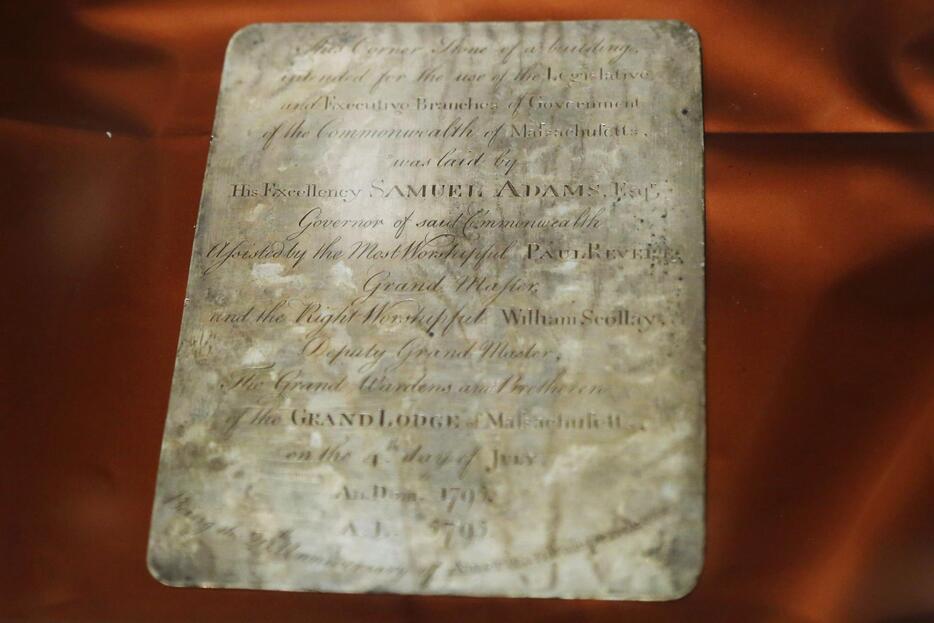 This Corner Stone of a building,
intended for the use of the Legislative
and Executive Branches of Government
of the Commonwealth of Maſsachuſetts,
was laid by
His Excellency SAMUEL ADAMS, Esqr.
Governor of said Commonwealth
Aſsisted by the Most Worſhipful PAUL REVERE,
Grand Maſter,
and the Right Worſhipful William Scollay,
Deputy Grand Master,
The Grand Wardens and Bretheren
of the GRAND LODGE of Maſsachuſetts,
on the 4th day of JULY,
An. Dom. 1795.
A. L. 5795
Being the Anniversary of American